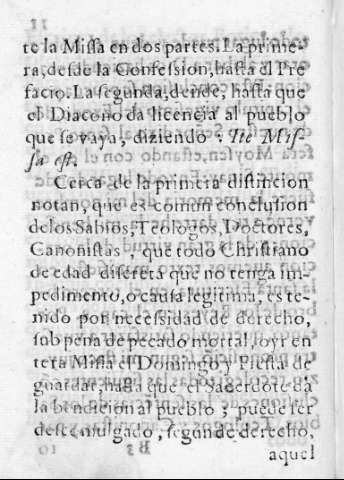 te la Missa en dos partes. La prime-
ra, desde la Confession, hasta el Pre
facio. La segunda, dende, hasta que
el Diacono da licencia al pueblo
que se vaya, diziendo: Ite Mis-
sa est.
Cerca de la primera distincion
notan, que es comun conclusion
de los Sabios, Teologos, Doctores,
Canonistas, que todo Christiano
de edad discreta que no tenga im-
pedimento, o causa legitima, es te-
nido por necessidad de derecho,
sub pena de pecado mortal, oyr en
tera Missa el Domingo y Fiesta de
guardar, hasta que el Sacerdote dà
la bendicion al pueblo; y puede ser
descomulgado, segun de derecho,
aquel